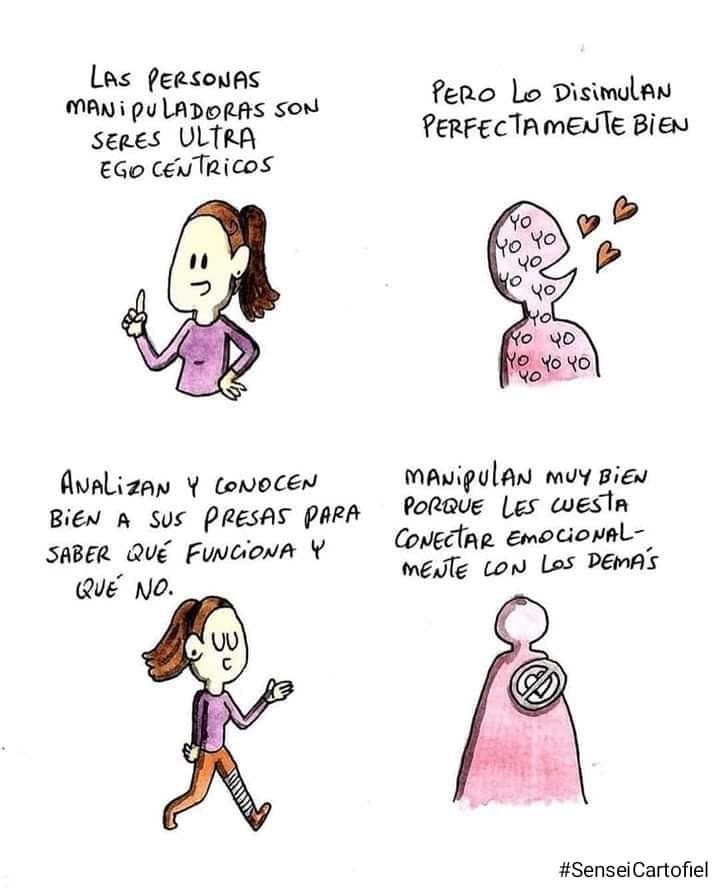 LAS PERSONAS
MANIPULADORAS SON
SERES ULTRA
EGOCÉNTRICOS
PERO LO DISIMULAN
PERFECTAMENTE BIEN
YO
YO YO
YO
YO
YO
YO
YO YO
YO YO YO
YO
ANALIZAN Y CONOCEN
BIEN A SUS PRESAS PARA
SABER QUÉ FUNCIONA Y
QUÉ NO.
MANIPULAN MUY BIEN
PORQUE LES CUESTA
CONECTAR EMOCIONAL-
MENTE CON LOS DEMÁS
#SenseiCartofiel